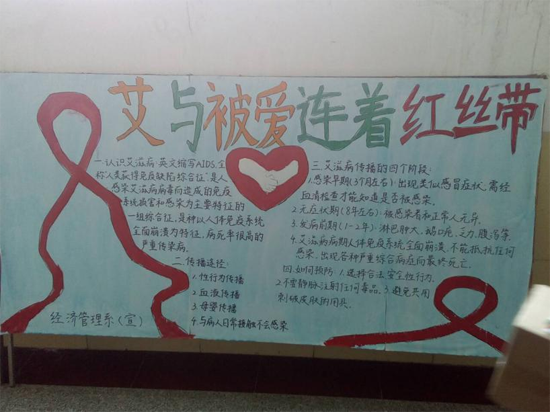 艾与被爱连着红丝带
一.认识艾滋病:英文缩写AIDS,全
称"人类获得免疫缺陷综合征"是人
感染艾滋病病毒而造成的免疫
系统损害和感染为主要特征的
一组综合征,是种以人体免疫系统
全面崩溃为特征,病死率极高的
严重传染病.
二.传播途径:
1.性行为传播
2.血液传播
3.母婴传播
4.与病人日常接触不会感染
经济管理系(宣)
三.艾滋病传播的四个阶段:
1.感染早期(3个月左右)出现类似感冒症状,需经
血清检查才能知道是否被感染.
2.无症状期(8年左右)被感染者和正常人无异.
3.发病前期(1-2年):淋巴肿大、乏力、腹泻等
4.艾滋病病期人体免疫系统全面崩溃,不能抵抗任何
感染,出现各种严重综合病症而最终死亡.
四.如何预防:1.选择合法安全性行为.
2.不要静脉注射任何毒品.3.避免共用
刺破皮肤的用具.